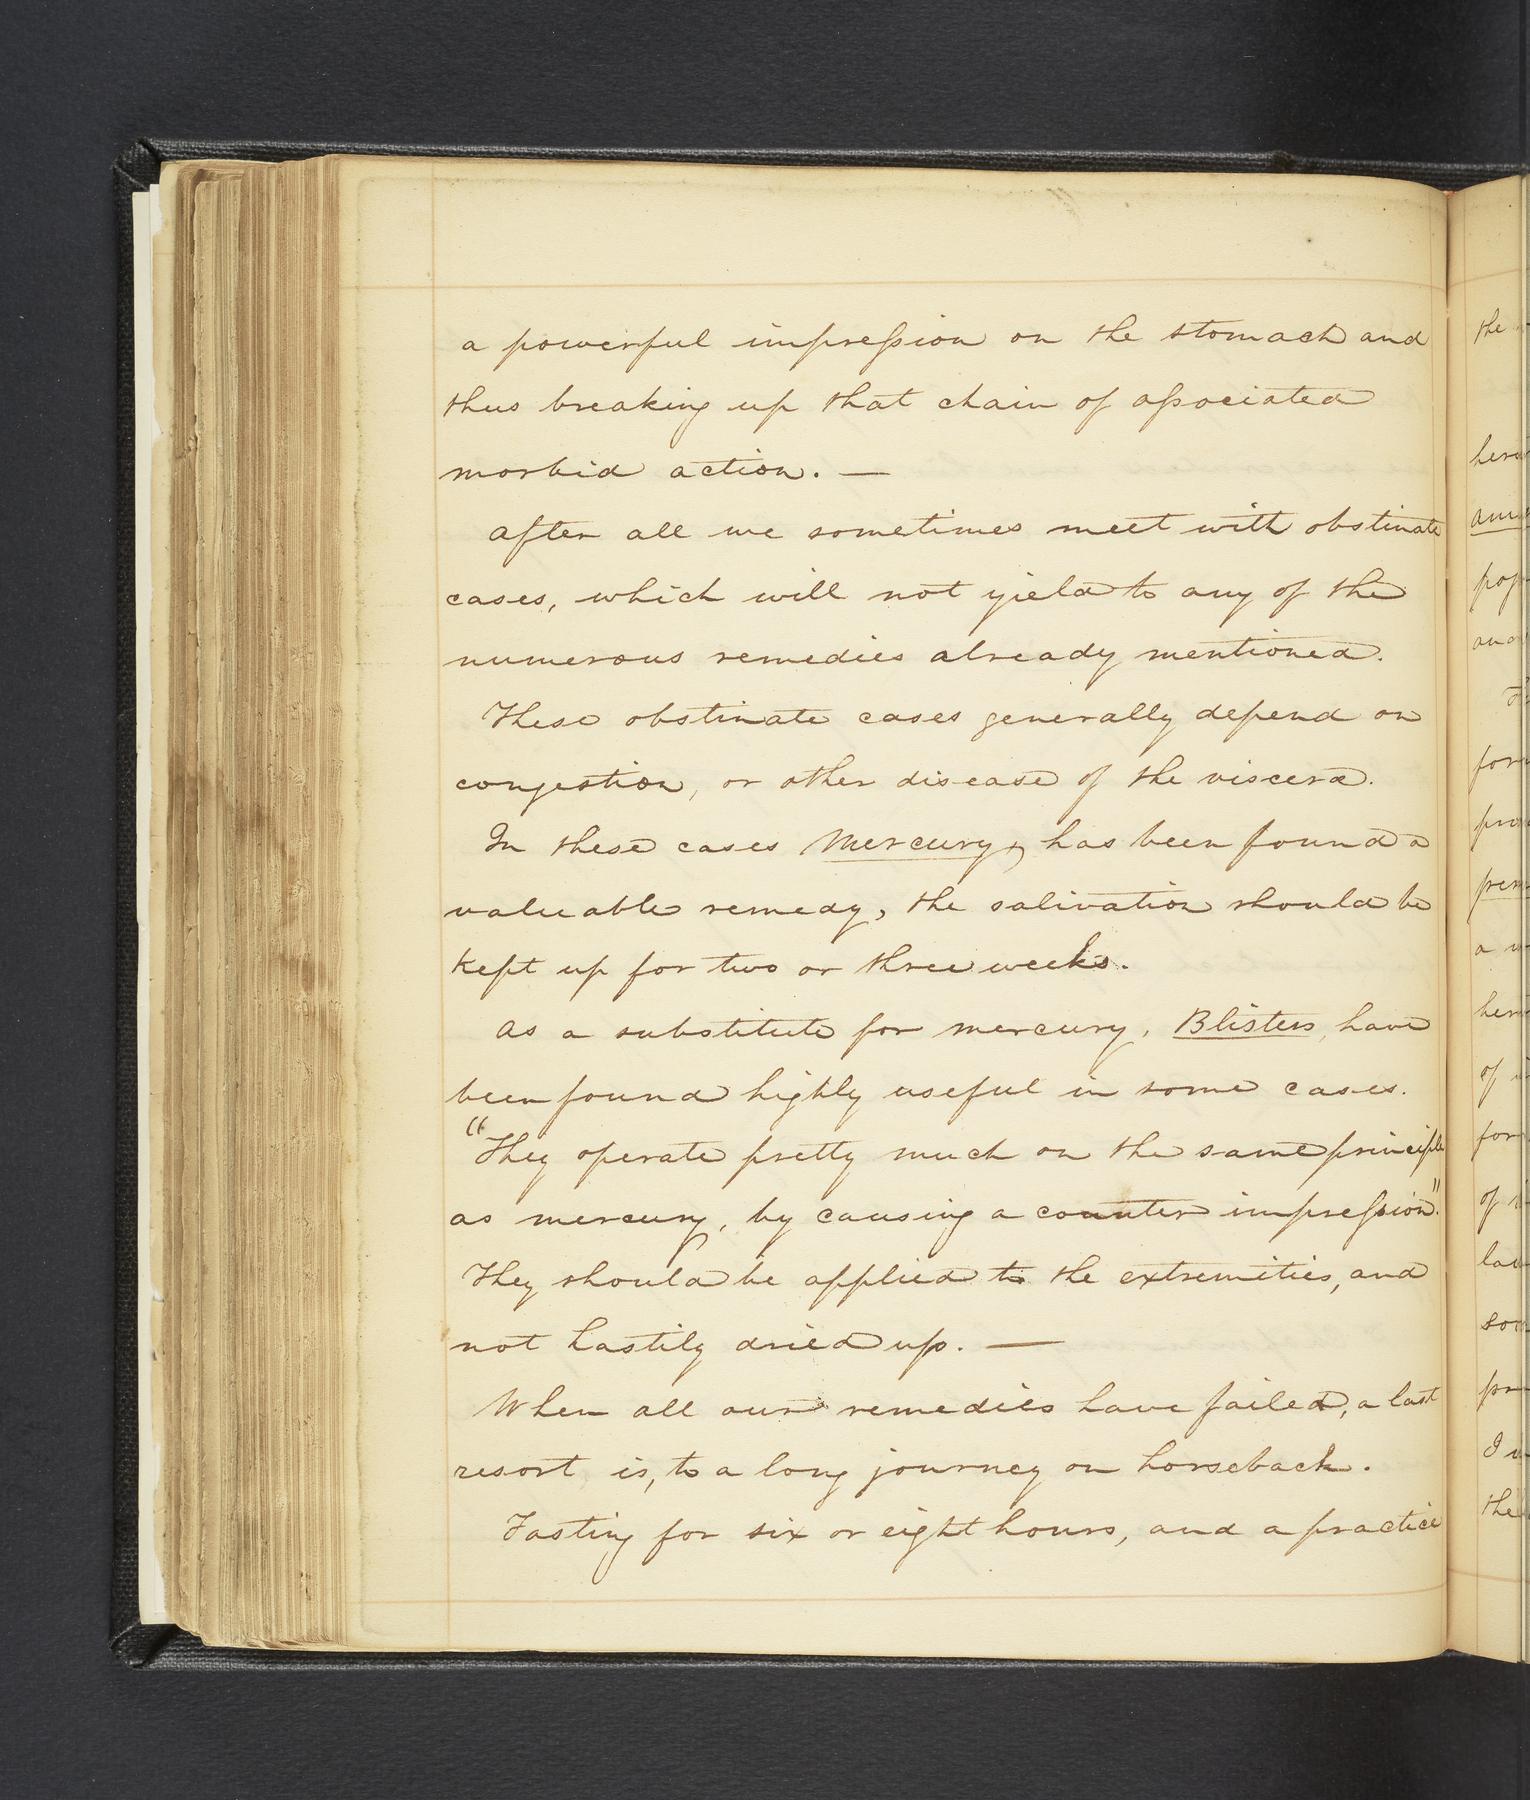 a powerful impreſsion on the stomach and
thus breaking up that chain of aſsociated
morbid action. —
After all we sometimes meet with obstinate
cases, which will not yield to any of the
numerous remedies already mentioned.
These obstinate cases generally depend on
congestion, or other disease of the viscera.
In these cases Mercury, has been found a
valuable remedy, the salivation should be
kept up for two or three weeks.
As a substitute for mercury, Blisters, have
been found highly useful in some cases.
"They operate pretty much on the same principle
as mercury, by causing a counter impreſsion".
They should be applied to the extremities, and
not hastily dried up. —
When all our remedies have failed, a last
resort is, to a long journey on horseback.
Fasting for six or eight hours, and a practice
the
of
of
a
I
the